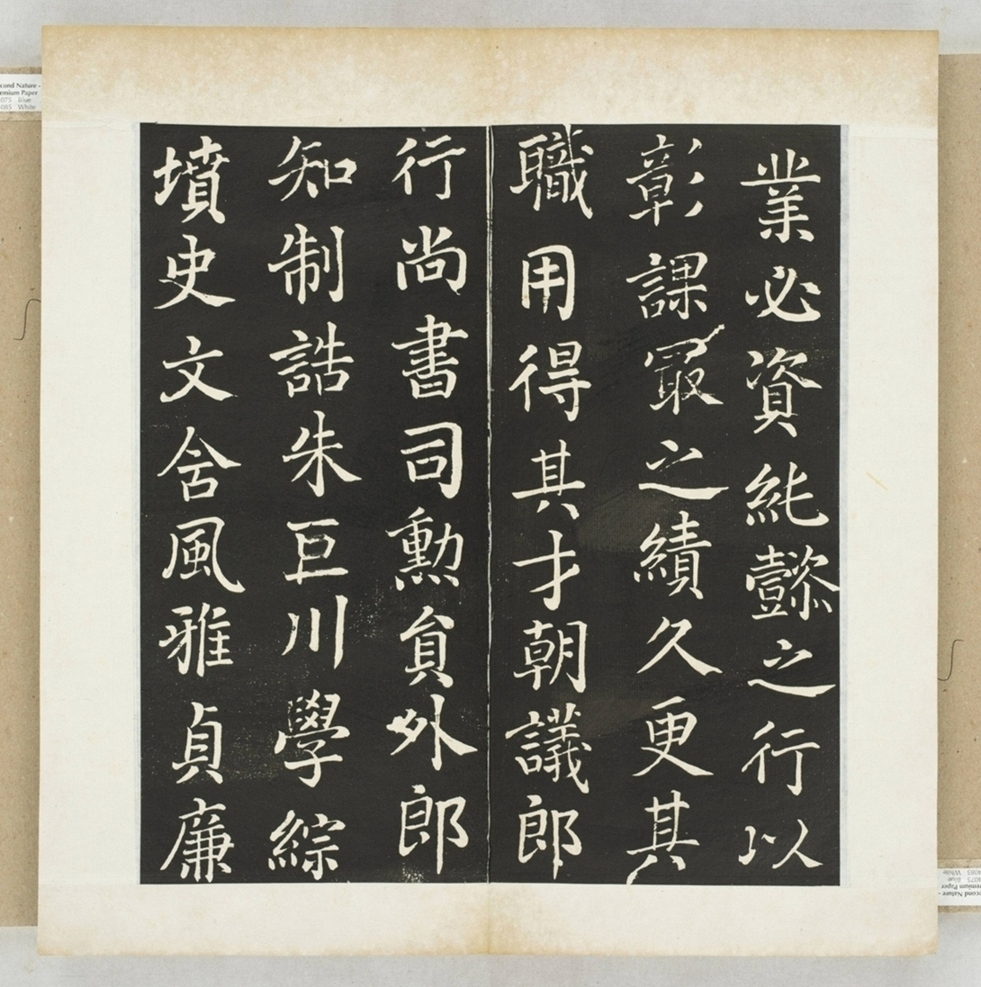 業必資純懿之行以
彰課冣之績久更其
職用得其才朝議郎
行尚書司勳貟外郎
知制誥朱巨川學綜
墳史文含風雅貞廉
cond Nature -
emium Paper
075 Blue
085 White